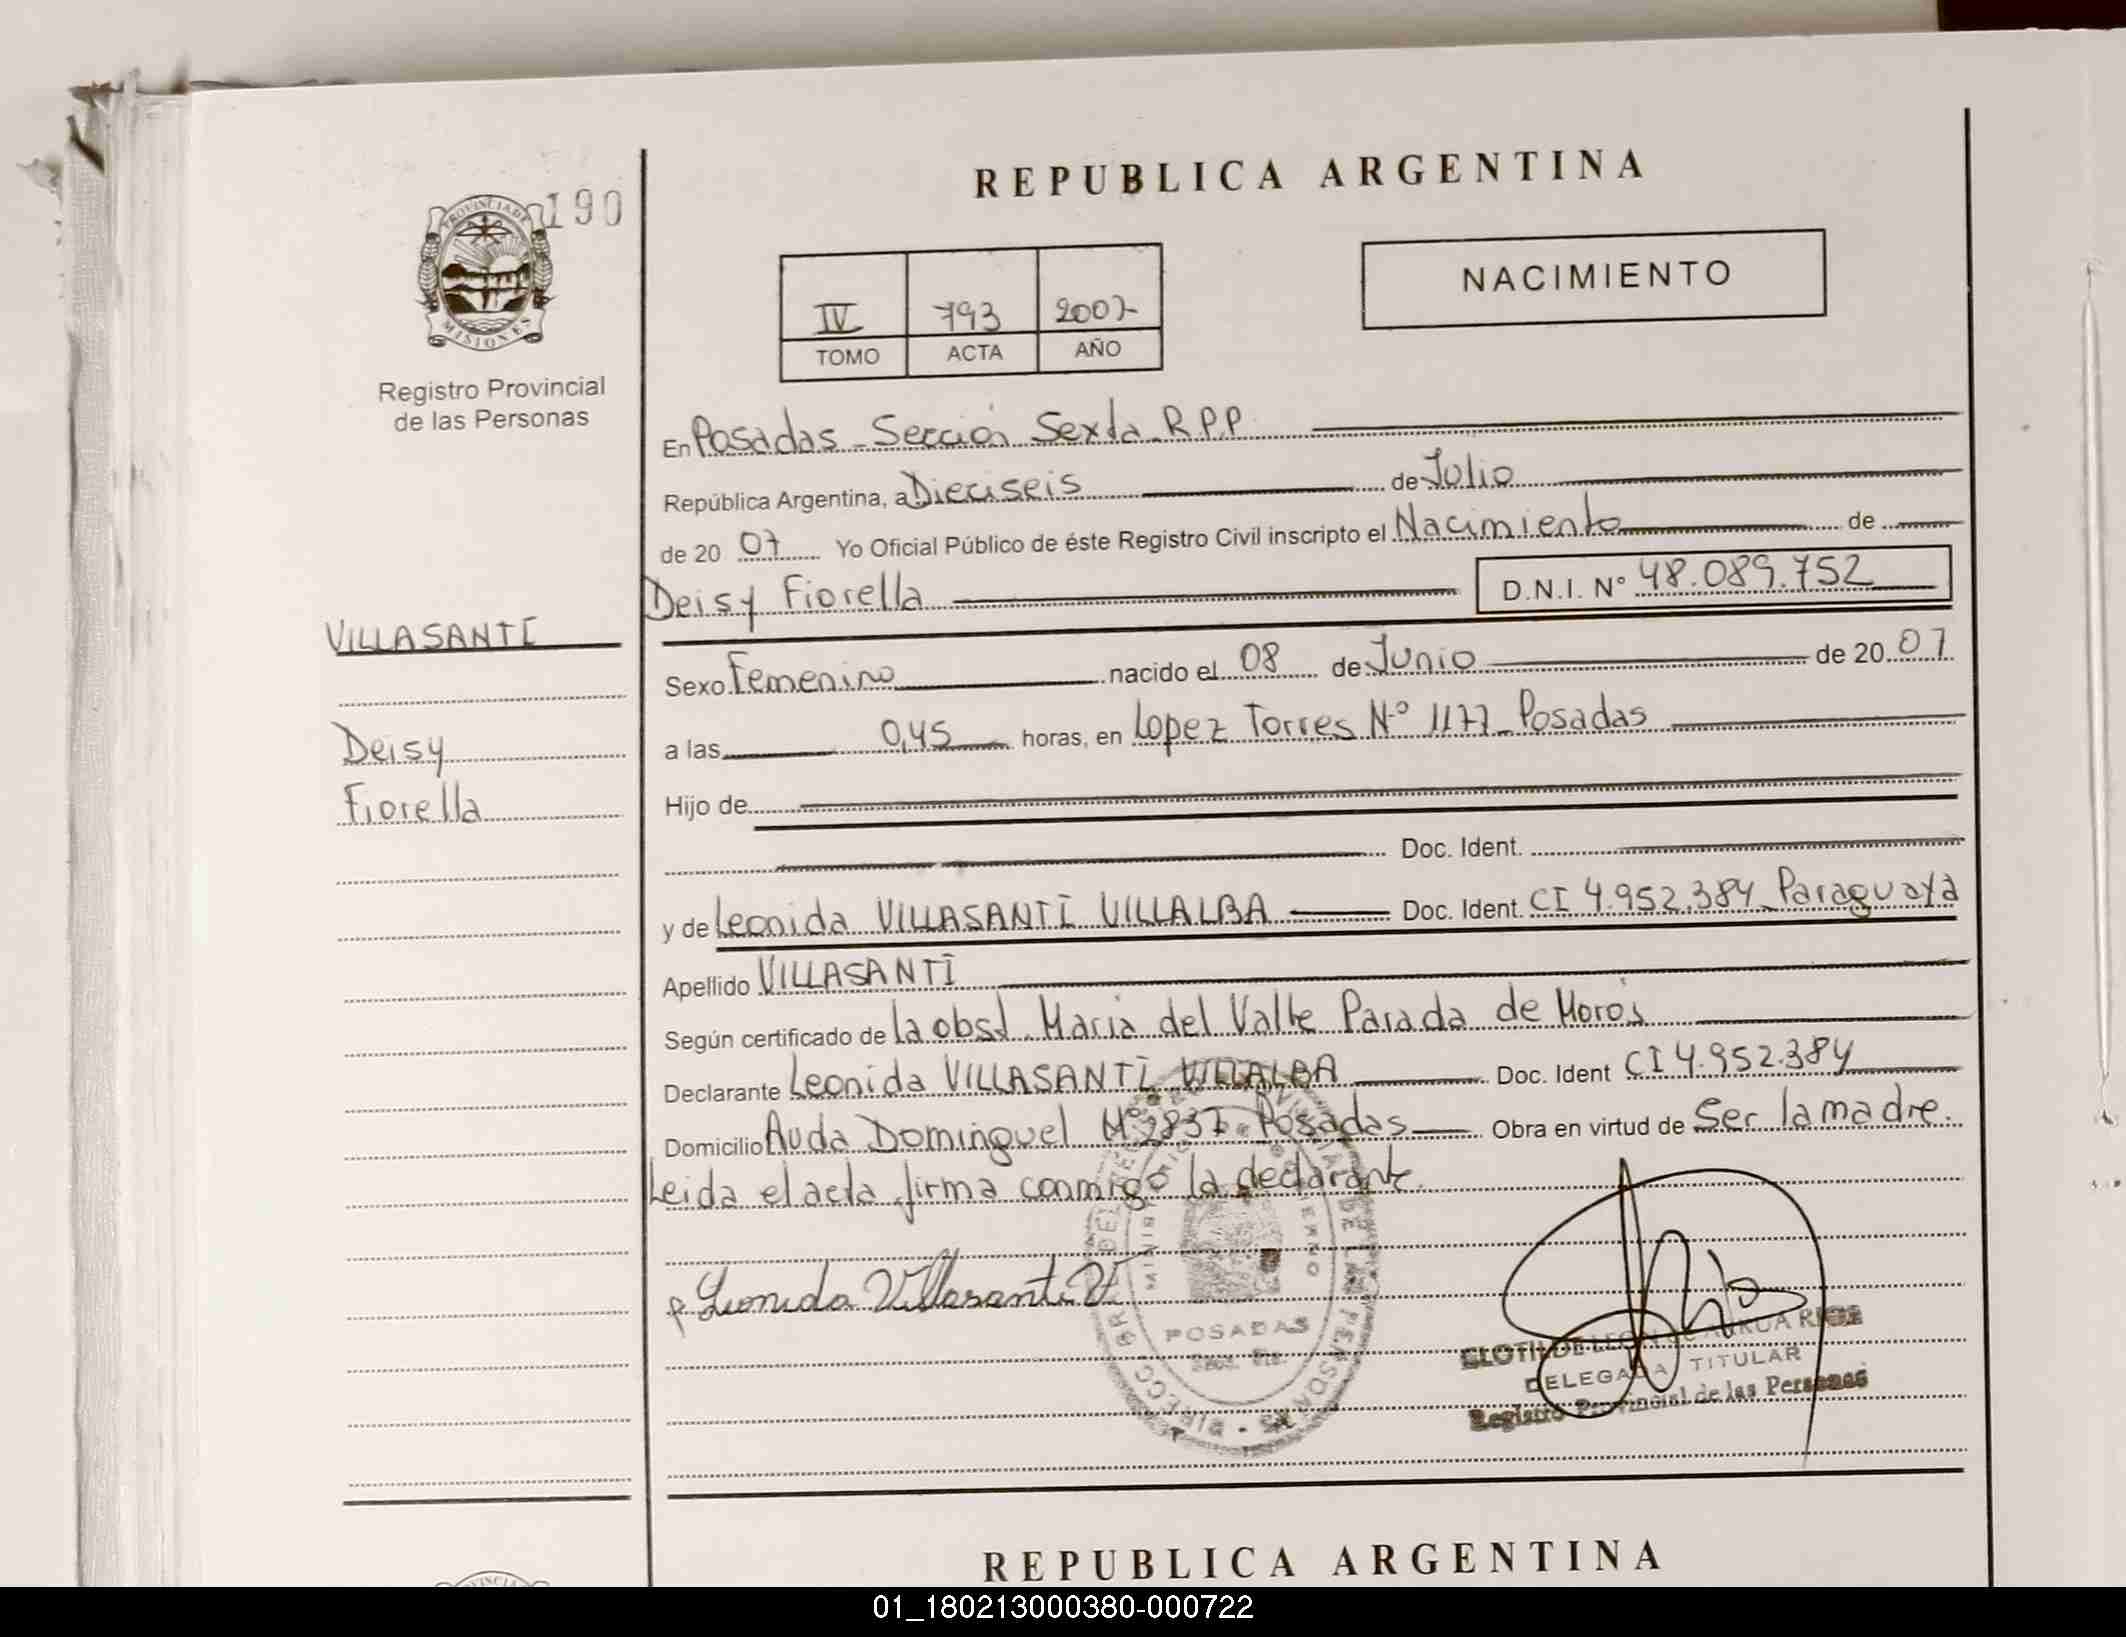 REPUBLICA ARGENTINA
190
PROVINCIA DE
MISIONES
Registro Provincial
de las Personas
IV 793 2007
TOMO ACTA AÑO
NACIMIENTO
En Posadas - Sección Sexta R.P.P.
República Argentina, a Dieciseis de Julio
de 20 07 Yo Oficial Público de éste Registro Civil inscripto el Nacimiento de
Deisy Fiorella D.N.I. Nº 48.089.752
VILLASANTI
Sexo Femenino nacido el 08 de Junio de 20 07
Deisy
a las 0,45 horas, en Lopez Torres Nº 1177 Posadas
Fiorella
Hijo de
Doc. Ident.
y de Leonida VILLASANTI VILLALBA Doc. Ident. CI 4.952.384 Paraguaya
Apellido VILLASANTI
Según certificado de la obst. Maria del Valle Parada de Moros
Declarante Leonida VILLASANTI VILLALBA Doc. Ident CI 4.952.384
Domicilio Avda Dominguel Posadas Obra en virtud de Ser la madre.
Leida el acta firma conmigo la declarante.
Leonida Villasanti V
POSADAS
DELEGADA TITULAR
Registro Provincial de las Personas
REPUBLICA ARGENTINA
01_180213000380-000722